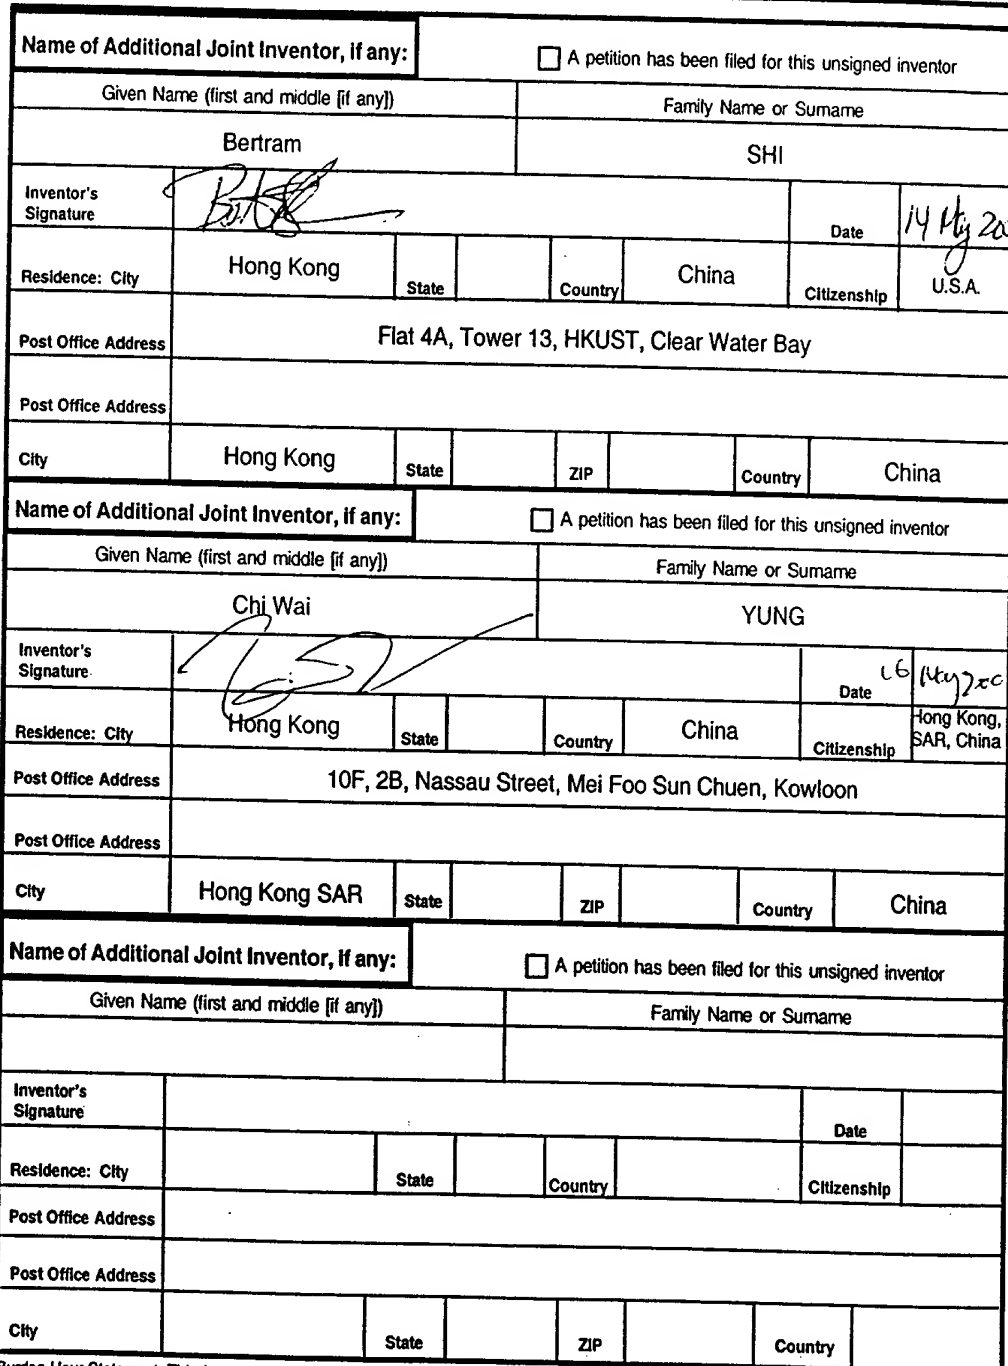 Name of Additional Joint Inventor, if any: A petition has been filed for this unsigned inventor
Given Name (first and middle [if any]) Family Name or Surname
Bertram SHI
Inventor's
Signature Date 14 May
Residence: City Hong Kong State Country China Citizenship U.S.A.
Post Office Address Flat 4A, Tower 13, HKUST, Clear Water Bay
Post Office Address
City Hong Kong State ZIP Country China
Name of Additional Joint Inventor, if any: A petition has been filed for this unsigned inventor
Given Name (first and middle [if any]) Family Name or Surname
Chi Wai YUNG
Inventor's
Signature Date 16 May
Residence: City Hong Kong State Country China Citizenship Hong Kong,
SAR, China
Post Office Address 10F, 2B, Nassau Street, Mei Foo Sun Chuen, Kowloon
Post Office Address
City Hong Kong SAR State ZIP Country China
Name of Additional Joint Inventor, if any: A petition has been filed for this unsigned inventor
Given Name (first and middle [if any]) Family Name or Surname
Inventor's
Signature Date
Residence: City State Country Citizenship
Post Office Address
Post Office Address
City State ZIP Country